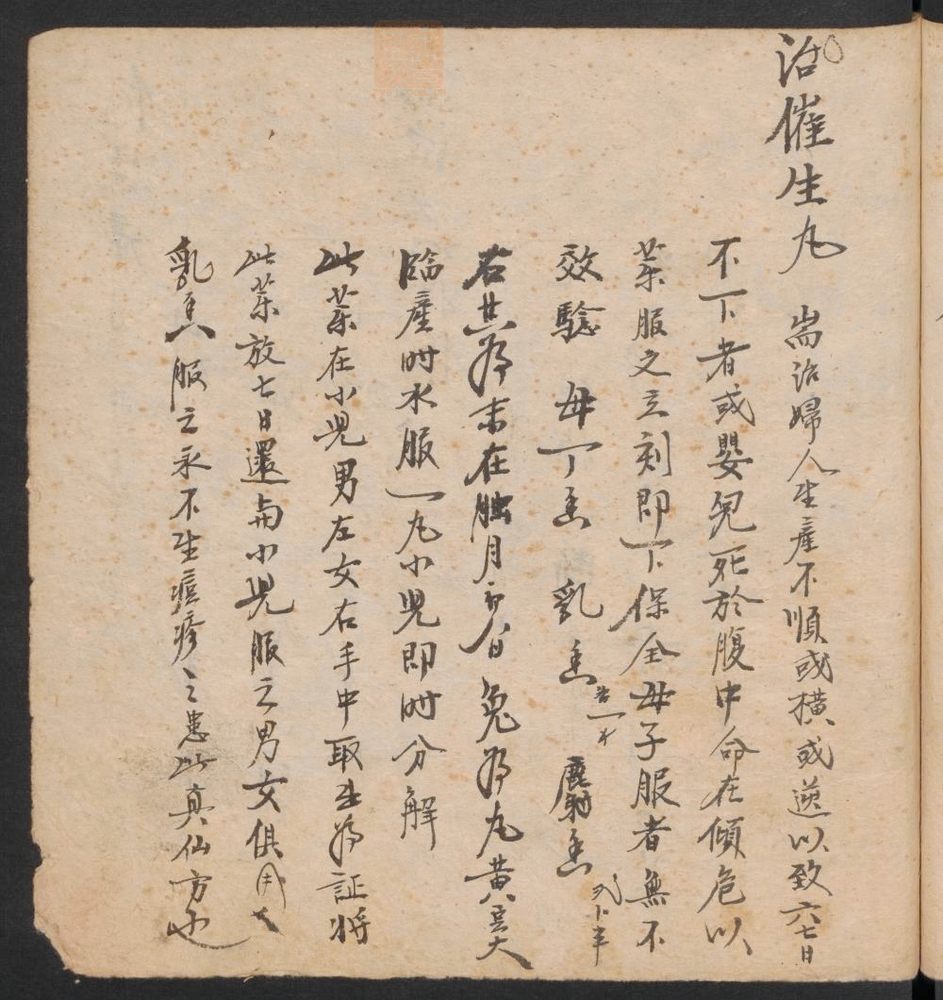 治催生丸 耑治婦人生產不順或橫或逆以致六七日
不下者或嬰兒死於腹中命在傾危以
藥服之立刻即下保全母子服者無不
效驗 母丁香 乳香 各一 麝香
右共為末在臘月 日兔 為丸黄豆大
臨產时水服一丸小兒即时分解
此藥在小兒男左女右手中取出為証將
此藥放七日還与小兒服之男女俱用
乳 服之永不生痘疹之患此真仙方也